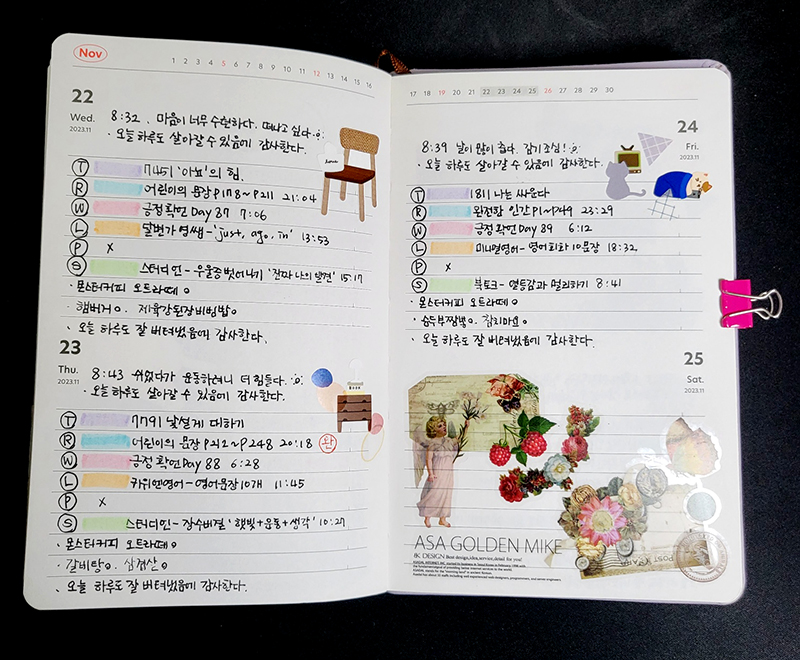 Nov
1 2 3 4 5 6 7 8 9 10 11 12 13 14 15 16
22
Wed.
2023.11
8:32 . 마음이 너무 수선하다. 떠나고 싶다
· 오늘 하루도 살아갈 수 있음에 감사한다.
T 7451 '아뇨'의 힘
R 어린이의 문장 P178~P211 21:04
W 긍정 확언 Day 87 7:06
L 달변가 영쌤-'just, ago, in' 13:53
P x
S 스터디언-우울증 벗어나기 '진짜 나의 발견' 15:17
· 몬스터커피 오트라떼
· 햄버거. 제육강된장비빔밥
· 오늘 하루도 잘 버텨냈음에 감사한다.
23
Thu.
2023.11
8:43 쉬었다가 운동하려니 더 힘들다.
· 오늘 하루도 살아갈 수 있음에 감사한다.
T 7791 낯설게 대하기
R 어린이의 문장 P212~P248 20:18 완
W 긍정 확언 Day 88 6:28
L 카위엔영어-영어문장10개 11:45
P x
S 스터디언-장수비결 '햇빛+운동+생각' 10:27
· 몬스터커피 오트라떼
· 갈비탕. 삼겹살
· 오늘 하루도 잘 버텨냈음에 감사한다.
17 18 19 20 21 22 23 24 25 26 27 28 29 30
24
Fri.
2023.11
8:39 날이 많이 춥다. 감기 조심!
· 오늘 하루도 살아갈 수 있음에 감사한다.
T 1811 나는 싸운다
R 완전한 인간 P1~P49 23:29
W 긍정 확언 Day 89 6:12
L 미니멀영어-영어회화 10문장 18:32
P x
S 북토크-열등감과 멀리하기 8:41
· 몬스터커피 오트라떼
· 순두부짬뽕. 감치마요
· 오늘 하루도 잘 버텨냈음에 감사한다.
25
Sat.
2023.11
ASA GOLDEN MIKE
8K DESIGN Best design, idea, service, detail for you!
POST